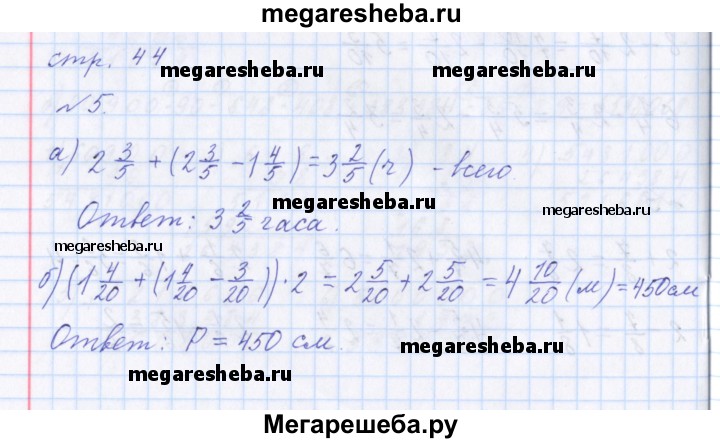 megaresheba.ru
стр. 44
megaresheba.ru megaresheba.ru
№5.
а) 2 3/5 + (2 3/5 - 1 4/5) = 3 2/5 (ч) - всего.
megaresheba.ru megaresheba.ru
Ответ: 3 2/5 часа.
megaresheba.ru
б) (1 4/20 + (1 4/20 - 3/20)) · 2 = 2 5/20 + 2 5/20 = 4 10/20 (м) = 450 см
Ответ: P = 450 см.
megaresheba.ru
megaresheba.ru
Мегарешеба.ру